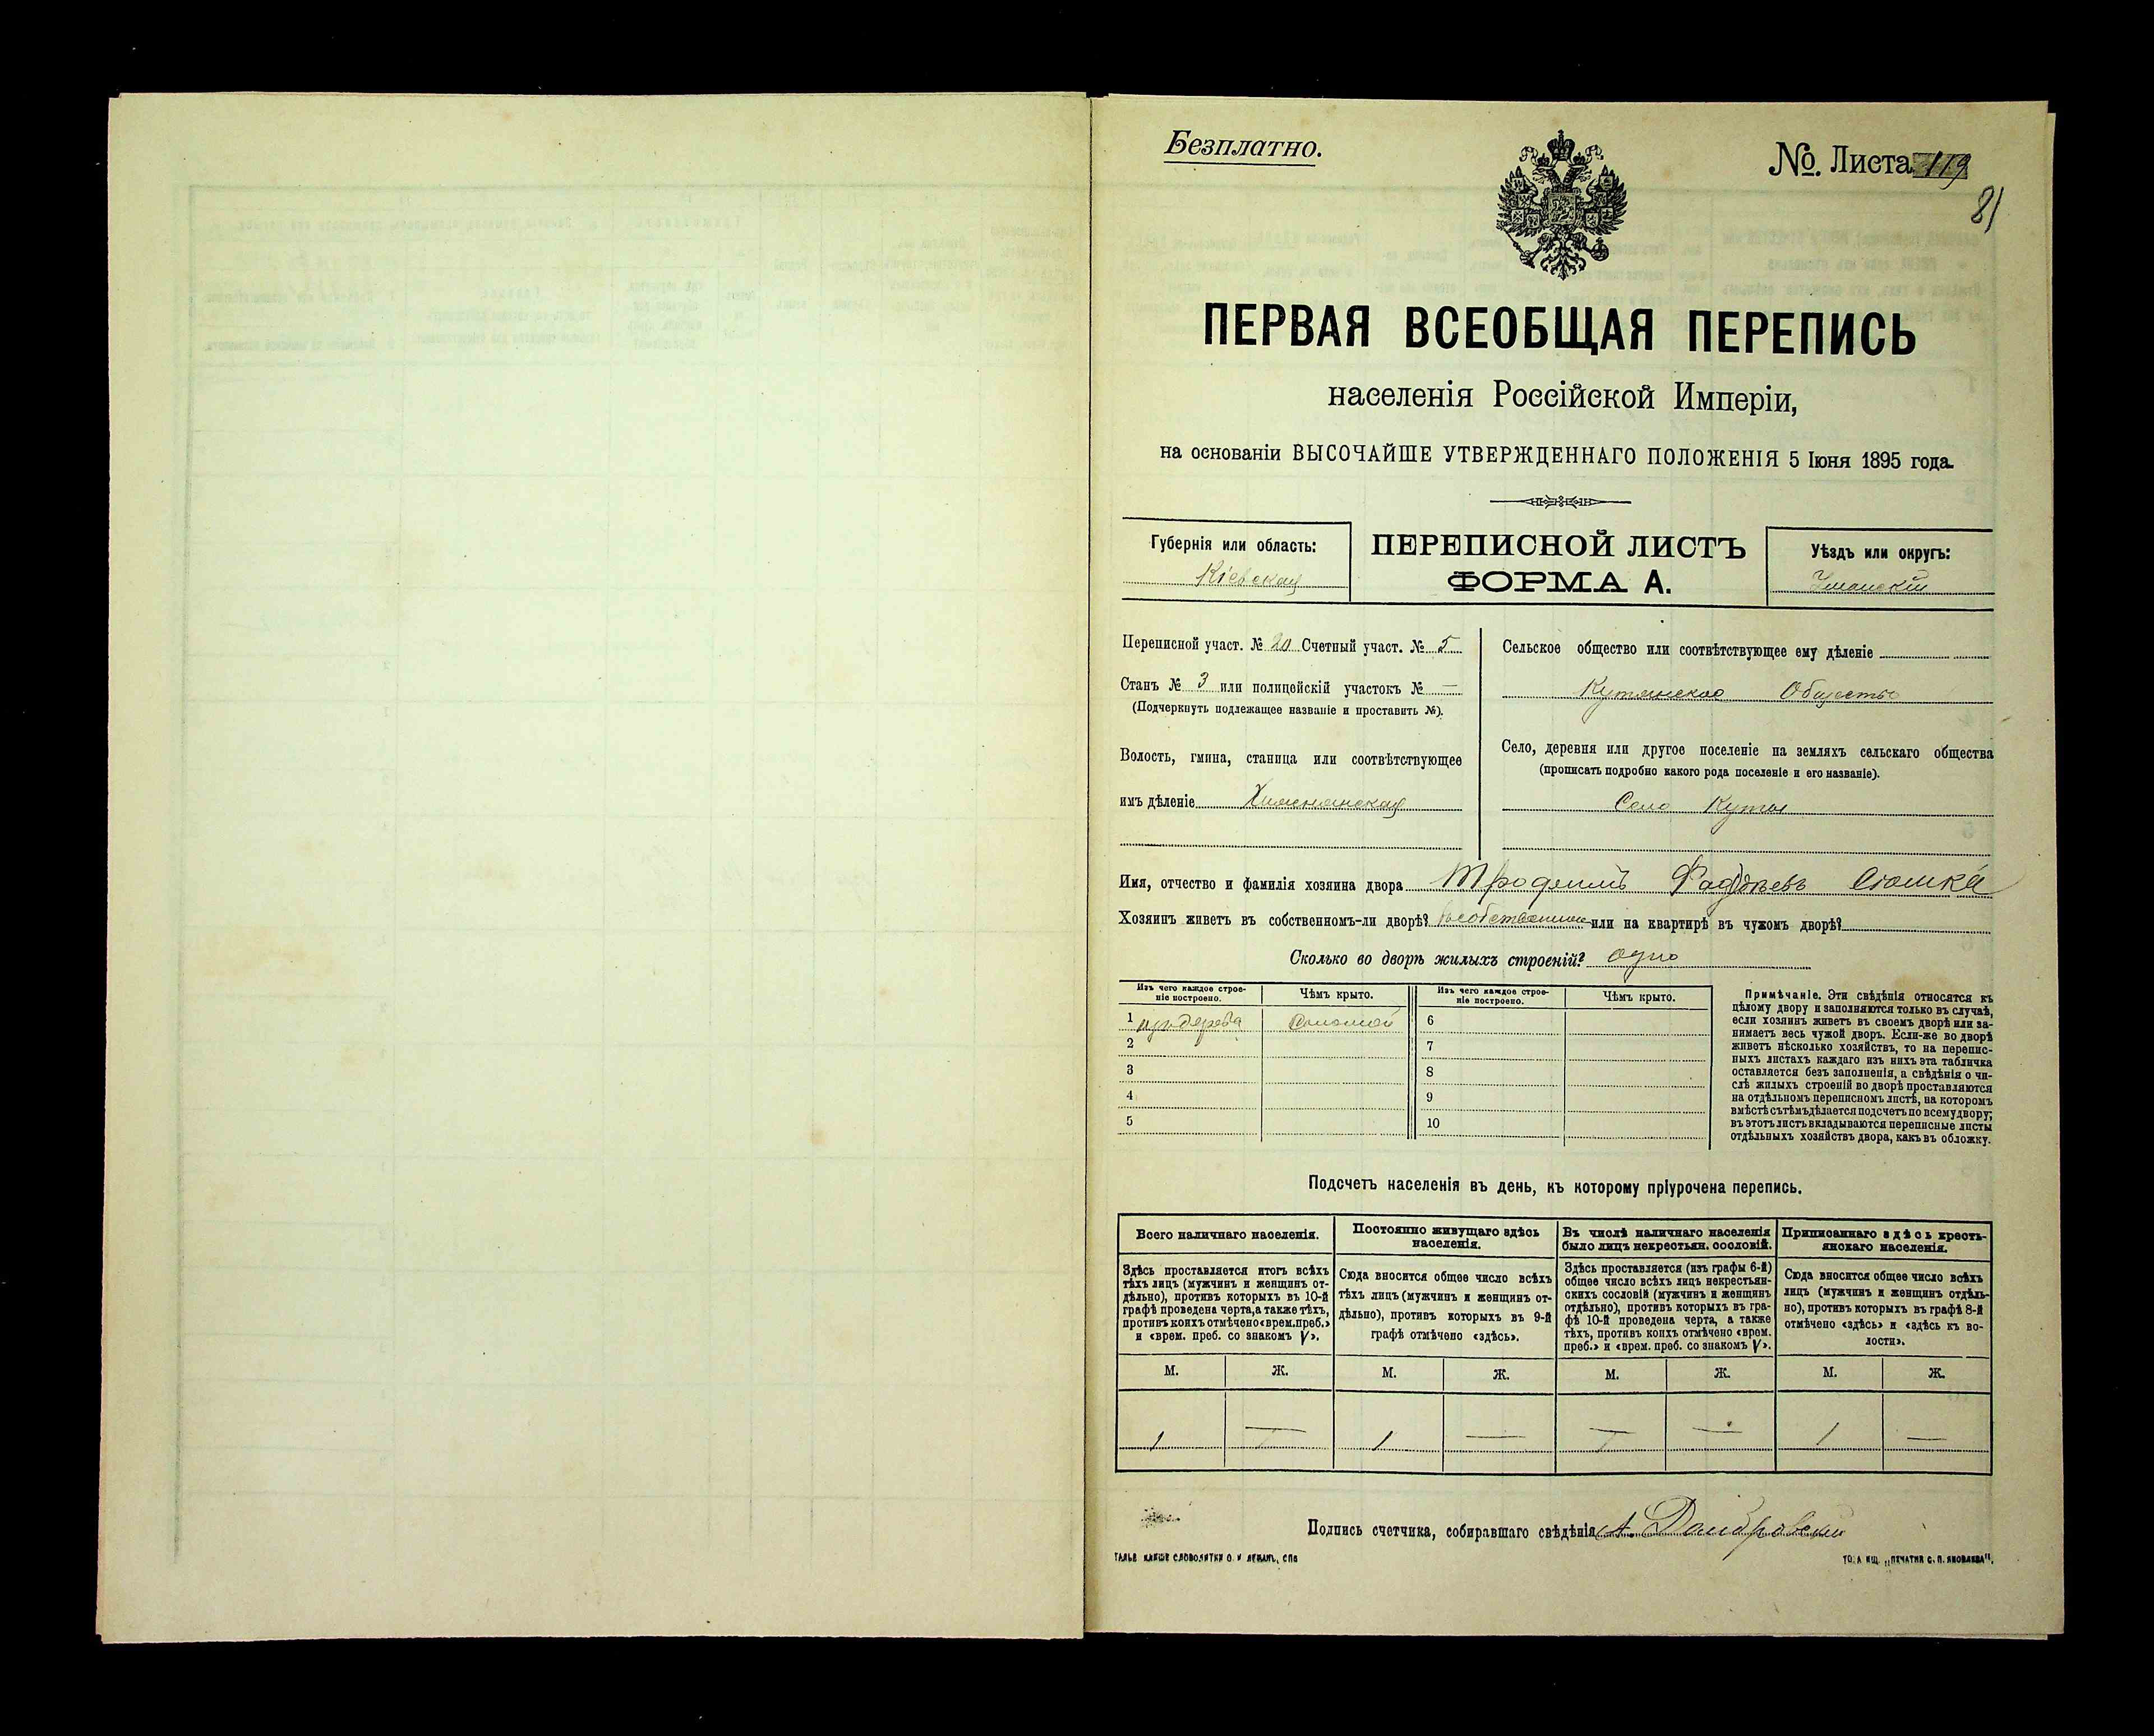 Безплатно.
№. Листа 119
81
ПЕРВАЯ ВСЕОБЩАЯ ПЕРЕПИСЬ
населенія Россійской Имперіи,
на основаніи ВЫСОЧАЙШЕ УТВЕРЖДЕННАГО ПОЛОЖЕНІЯ 5 Іюня 1895 года.
Губернія или область:
Кіевская
ПЕРЕПИСНОЙ ЛИСТЪ
ФОРМА А.
Уѣздъ или округъ:
Уманскій
Переписной участ. № 20 Счетный участ. № 5
Станъ № 3 или полицейскій участокъ № —
(Подчеркнуть подлежащее названіе и проставить №).
Волость, гмина, станица или соотвѣтствующее
имъ дѣленіе
Сельское общество или соотвѣтствующее ему дѣленіе
Кутянское Общество
Село, деревня или другое поселеніе на земляхъ сельскаго общества
(прописать подробно какого рода поселеніе и его названіе).
Село Куты
Имя, отчество и фамилія хозяина двора
Хозяинъ живетъ въ собственномъ-ли дворѣ? въ собственномъ или на квартирѣ въ чужомъ дворѣ?
Сколько во дворѣ жилыхъ строеній? одно
Изъ чего каждое строе-
ніе построено.
Чѣмъ крыто.
Изъ чего каждое строе-
ніе построено.
Чѣмъ крыто.
1 изъ дерева Соломой 6
2 7
3 8
4 9
5 10
Примѣчаніе. Эти свѣдѣнія относятся къ
цѣлому двору и заполняются только въ случаѣ,
если хозяинъ живетъ въ своемъ дворѣ или за-
нимаетъ весь чужой дворъ. Если-же во дворѣ
живетъ нѣсколько хозяйствъ, то на перепис-
ныхъ листахъ каждаго изъ нихъ эта табличка
оставляется безъ заполненія, а свѣдѣнія о чи-
слѣ жилыхъ строеній во дворѣ проставляются
на отдѣльномъ переписномъ листѣ, на которомъ
вмѣстѣ съ тѣмъ дѣлается подсчетъ по всему двору;
въ этотъ листъ вкладываются переписные листы
отдѣльныхъ хозяйствъ двора, какъ въ обложку.
Подсчетъ населенія въ день, къ которому пріурочена перепись.
Всего наличнаго населенія.
Здѣсь проставляется итогъ всѣхъ
тѣхъ лицъ (мужчинъ и женщинъ от-
дѣльно), противъ которыхъ въ 10-й
графѣ проведена черта, а также тѣхъ,
противъ коихъ отмѣчено «врем. преб.»
и «врем. преб. со знакомъ V».
Постоянно живущаго здѣсь
населенія.
Сюда вносится общее число всѣхъ
тѣхъ лицъ (мужчинъ и женщинъ от-
дѣльно), противъ которыхъ въ 9-й
графѣ отмѣчено «здѣсь».
Въ числѣ наличнаго населенія
было лицъ некрестьян. сословій.
Здѣсь проставляется (изъ графы 6-й)
общее число всѣхъ лицъ некрестьян-
скихъ сословій (мужчинъ и женщинъ
отдѣльно), противъ которыхъ въ гра-
фѣ 10-й проведена черта, а также
тѣхъ, противъ коихъ отмѣчено «врем.
преб.» и «врем. преб. со знакомъ V».
Приписаннаго здѣсь кресть-
янскаго населенія.
Сюда вносится общее число всѣхъ
лицъ (мужчинъ и женщинъ отдѣль-
но), противъ которыхъ въ графѣ 8-й
отмѣчено «здѣсь» и «здѣсь къ во-
лости».
М. Ж. М. Ж. М. Ж. М. Ж.
1 — 1 — — — 1 —
Подпись счетчика, собиравшаго свѣдѣнія А. Домбровскій